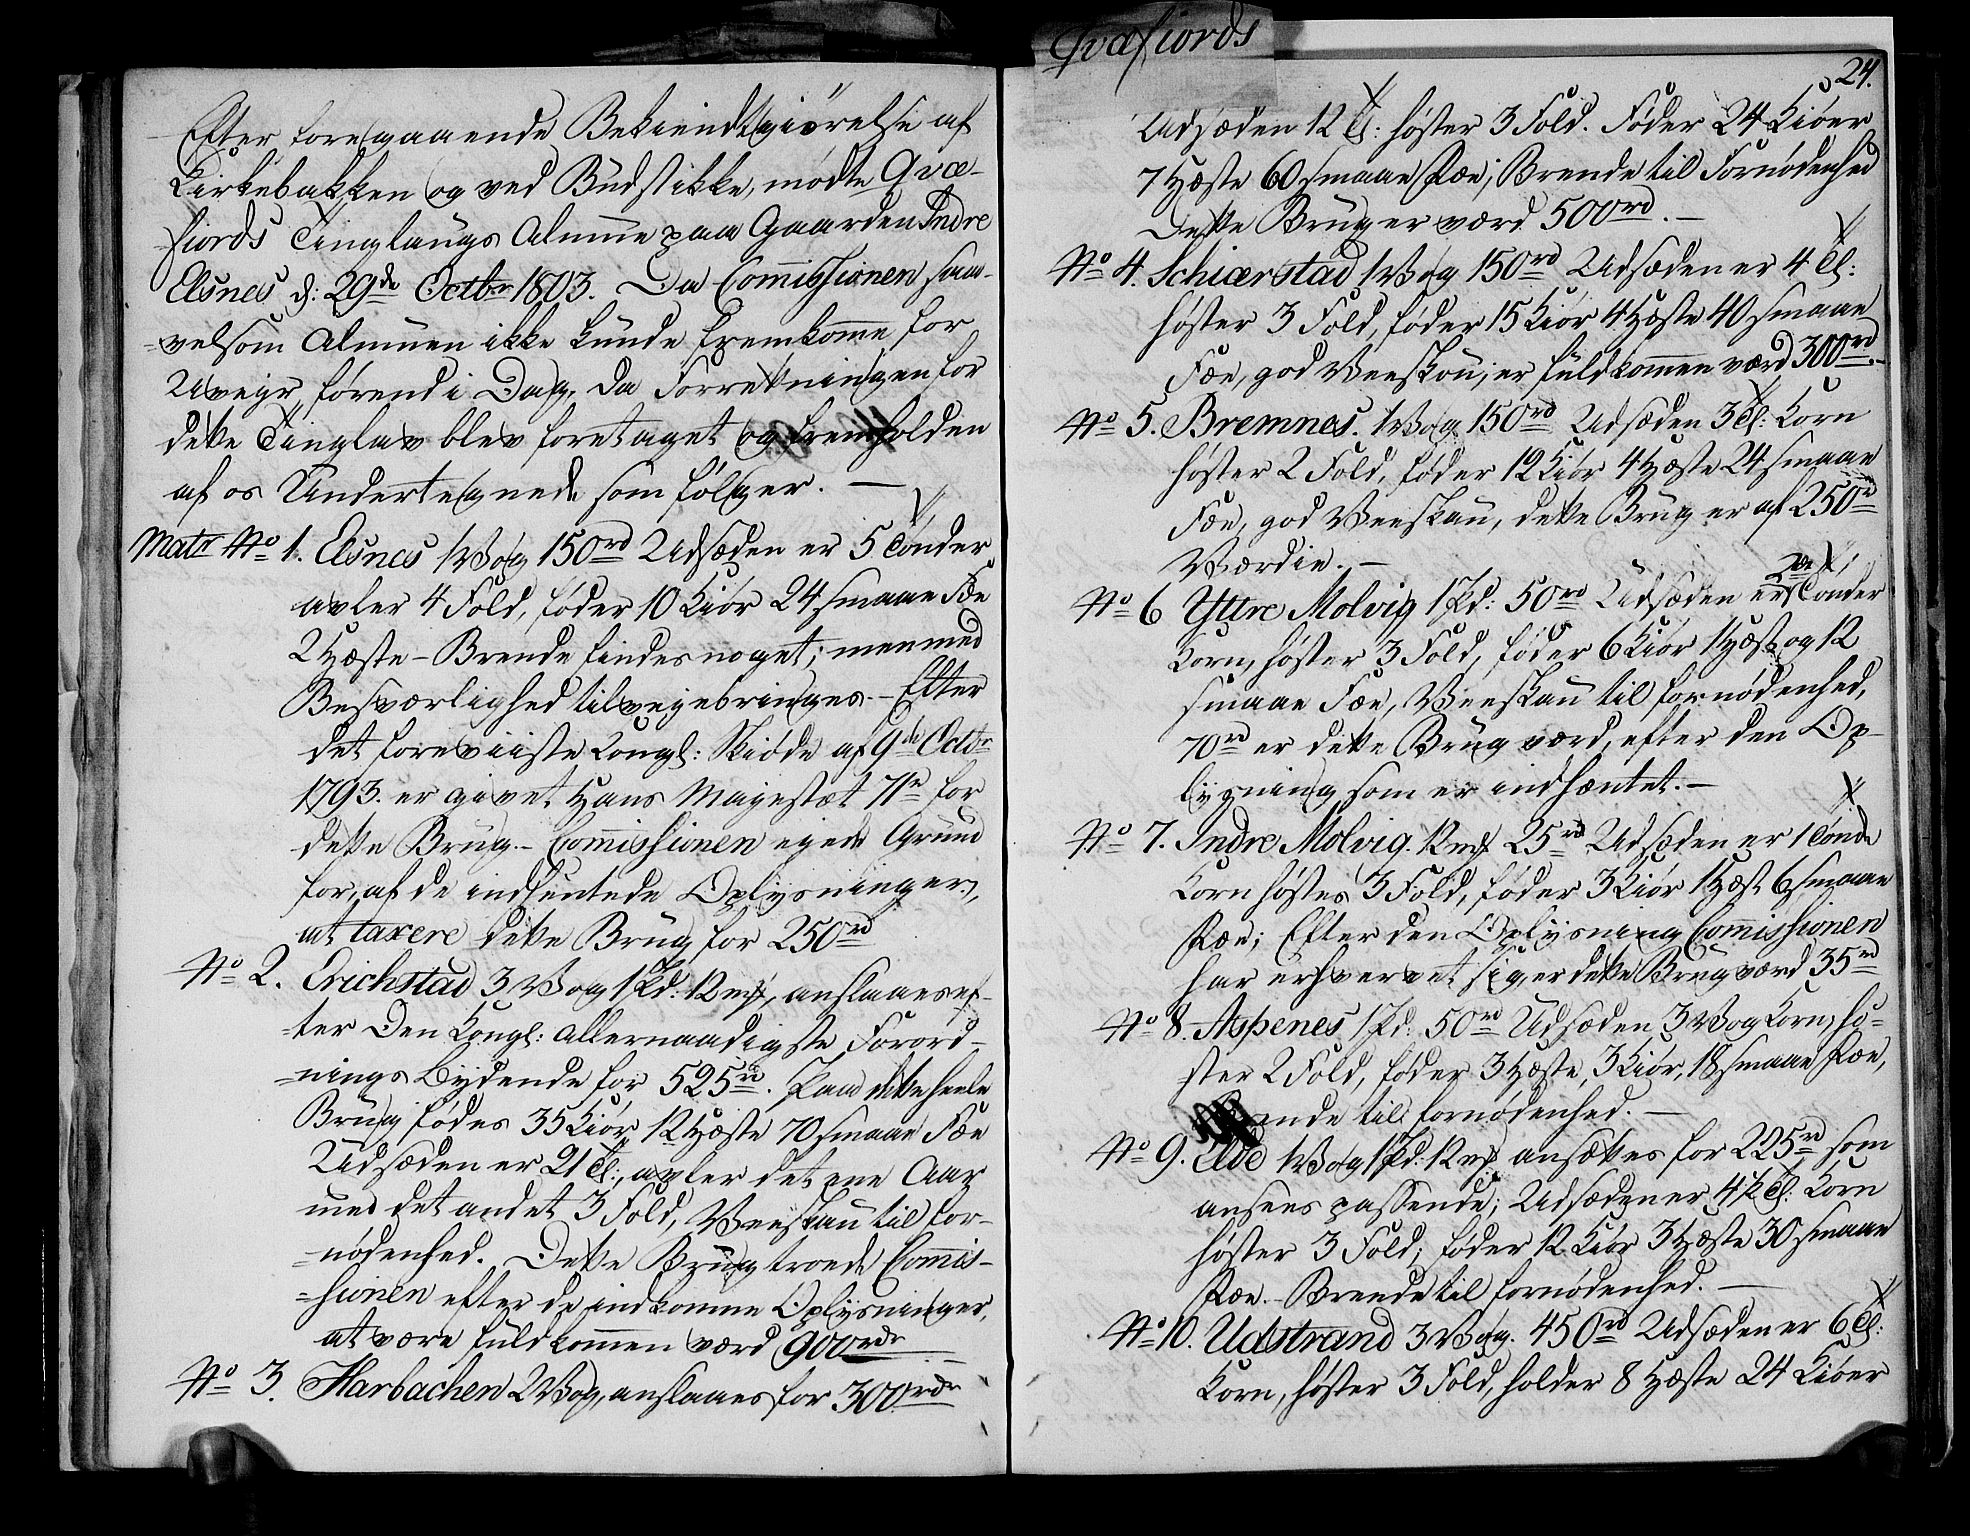 Efter foregaaende Bekiendtgiørelse af
Kirkebakken og ved Budstikke, mødte Qvæ-
fiords Tinglaugs Almue paa Gaarden Indre
Elsnes d: 29de Octbr 1803. Da Commissionen saa-
velsom Almuen ikke kunde fremkomme for
Uvejr, førend i Dag, da Forretningen for
dette Tinglav blev foretaget og fremholden
af os Undertegnede som følger. —
Matr No 1. Elsnes 1 Vog 150rd Udsæden er 5 Tønder
avler 4 Fold, føder 10 Kiør 24 smaae Fæe
2 Hæste - Brende findes noget; men med
Besværlighed tilvejebringes. - Efter
det foreviiste Kongl: Skiøde af 9de Octbr
1793. er givet Hans Majestæt 71rd for
dette Brug. - Commissionen ejede Grund
for, af de indhentede Oplysninger,
at taxere dette Brug for 250rd
No 2. Erichstad 3 Vog 1 Pd: 12 mk, anslaaes ef-
ter Den Kongl: allernaadigste Forord-
nings Bydende for 525rd. Paa dette heele
Brug fødes 35 Kiør 12 Hæste 70 smaae Fæe
Udsæden er 21 Td:, avler det ene Aar
med det andet 3 Fold, Veeskau til for-
nødenhed. Dette Brug troede Commis-
sionen efter de indkomne Oplysninger,
at være fuldkommen værd 900rdr
No 3. Harbachen 2 Vog, anslaaes for 300rdr
Qvæfiords
24.
Udsæden 12 Td: høster 3 Fold. Føder 24 Kiøer
7 Hæste 60 smaae Fæe; Brende til Fornødenhed
Dette Brug er værd 500rd. —
No 4. Schiærstad 1 Vog 150rd Udsæden er 4 Td:
høster 3 Fold, føder 15 Kiør 4 Hæste 40 smaae
Fæe, god Veeskou; er fuldkommen værd 300rd. -
No 5. Bremnes. 1 Vog 150rd Udsæden 3 Td: Korn
høster 2 Fold, føder 12 Kiør 4 Hæste 24 smaae
Fæe, god Veeskau, dette Brug er af 250rd
Værdie. —
No 6 Yttre Molvig 1 Pd: 50rd Udsæden er 2de Tønder
Korn, høster 3 Fold, føder 6 Kiør 1 Hæst og 12
smaae Fæe, Veeskau til fornødenhed,
70rd er dette Brug værd, efter den Op-
lysning som er indhæntet. —
No 7. Indre Molvig. 12 mk 25rd Udsæden er 1 Tønde
Korn høstes 3 Fold, føder 3 Kiør 1 Hæst 6 smaae
Fæe; Efter den Oplysning Commissionen
har erhvervet sig, er dette Brug værd 35rd
No 8. Aspenes 1 Pd: 50rd Udsæden 3 Vog Korn, hø-
ster 2 Fold, føder 3 Hæste, 3 Kiør, 18 smaae Fæe,
Brende til fornødenhed. —
No 9. Elde 1 Vog 1 Pd: 12 mk ansættes for 225rd som
ansees passende; Udsæden er 4 1/2 Td: Korn
høster 3 Fold; føder 12 Kiør 3 Hæste 30 smaae
Fæe. - Brende til fornødenhed. —
No 10. Udstrand 3 Vog. 450rd Udsæden er 6 Td:
Korn, høster 3 Fold, holder 8 Hæste 24 Kiøer